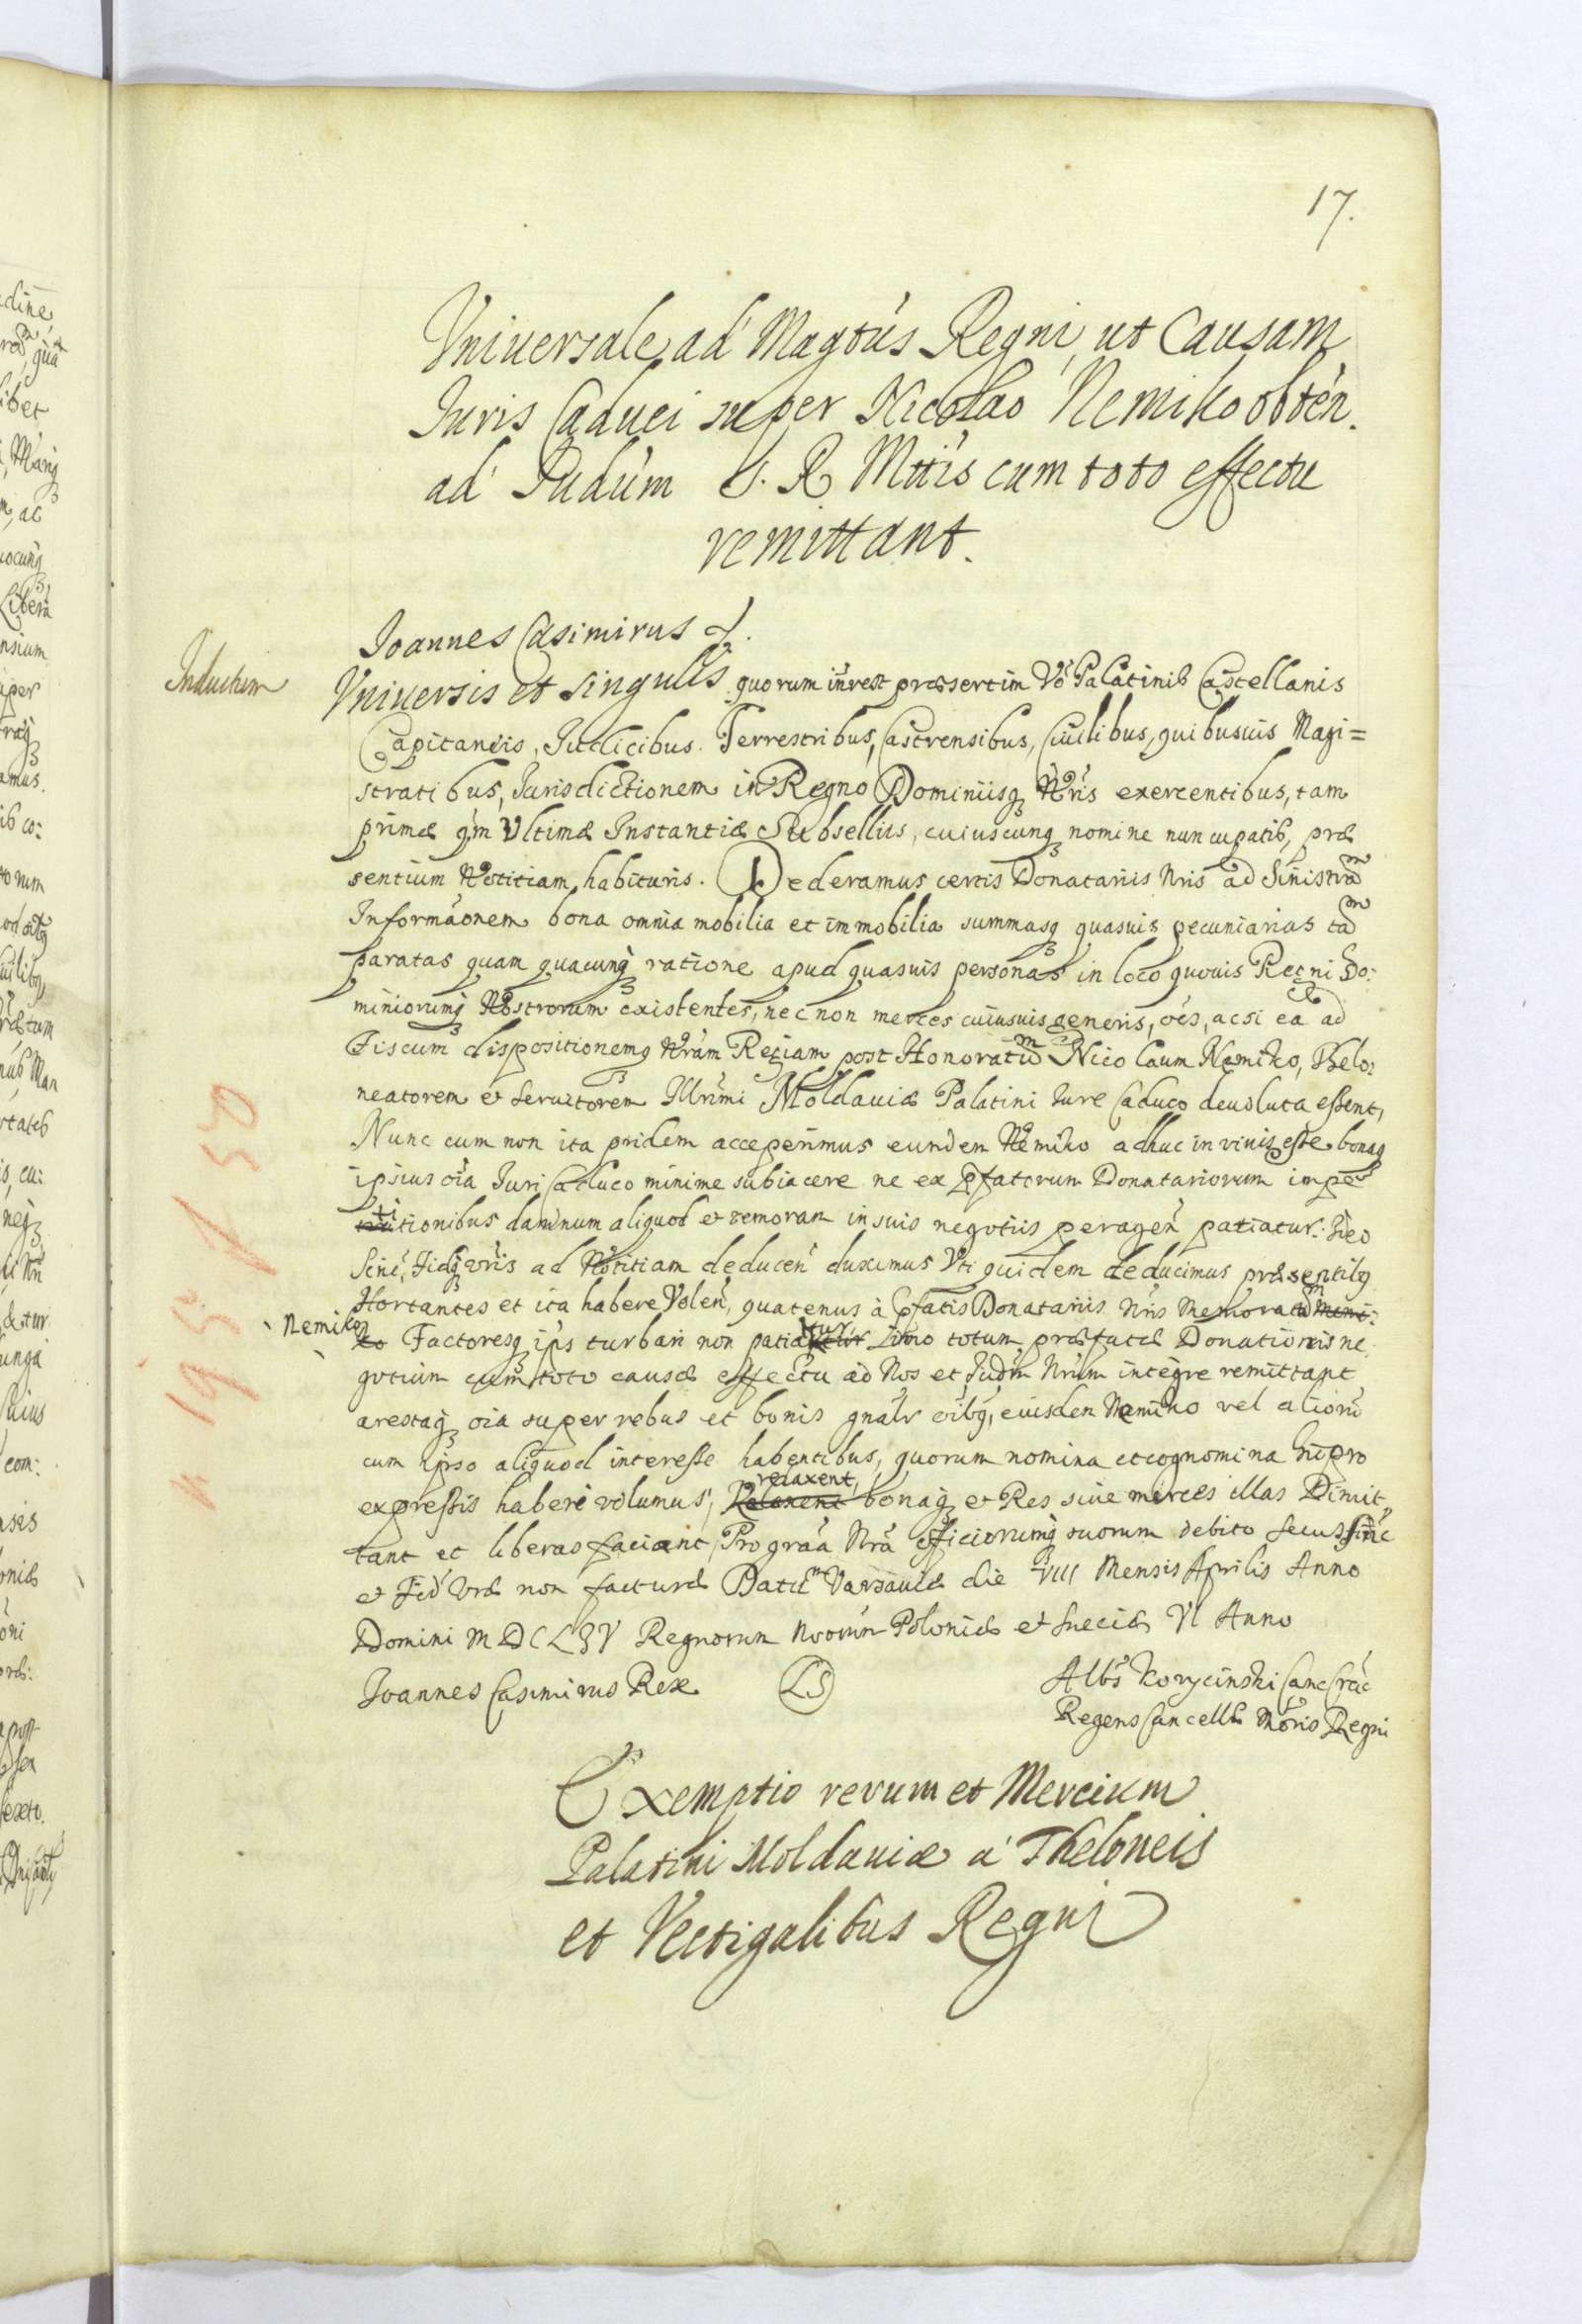 17.
Vniuersale ad Magtus Regni, ut Causam
Iuris Caduci super Nicolao Nemiko obten.
ad Iudum S. R. Mttis cum toto effectu
remittant.
Joannes Casimirus
Vniuersis et singulis quorum inrest præsertim Vo Palatinis Castellanis
Capitaneis, Iudicibus Terrestribus, Castrensibus, Ciuilibus, quibusuis Magi=
stratibus, Iurisdictionem in Regno Dominiisq Nris exercentibus, tam
primæ qm Vltimæ Instantiæ Subselliis, cuiuscunq nomine nuncupatis, præ
sentium Notitiam habituris. Dederamus certis Donatariis Nris ad Sinistram
Informaonem bona omnia mobilia et immobilia summasq quasuis pecuniarias tam
paratas quam quacunq ratione apud quasuis personas in loco quouis Regni Do:
miniorumq Nostrorum existentes, nec non merces cuiusuis generis, oes, acsi ea ad
Fiscum dispositionemq Nram Regiam post Honoratum Nicolaum Nemiko, Thelo:
neatorem et Seruitorem Illrimi Moldauiæ Palatini Iure Caduco deuoluta essent,
Nunc cum non ita pridem acceperimus eundem Nemiko adhuc in viuis esse bonaq
ipsius oia Iuri Caduco minime subiacere ne ex pfatorum Donatariorum impe
titionibus damnum aliquod et remoram in suis negotiis peragen patiatur. Ideo
Sinc, Fidq vris ad Notitiam deducen duximus Vti quidem deducimus præsentibq
Hortantes et ita habere Volen, quatenus à pfatis Donatariis Nris Memoratum Nemi:
Nemiko
ko Factoresq ips turbari non patiantur Imo totum præfatæ Donationis ne
gotium cum toto causæ effectu ad Nos et Iudm Nrum integre remittant
arestaq oia super rebus et bonis gnalr oibq, eiusdem Nemiko vel alioru
cum ipso aliquod interesse habentibus, quorum nomina et cognomina hic pro
expressis haberi volumus, relaxent, Relaxent bonaq et Res siue merces illas Dimit,
tant et liberas faciant, Pro graa Nra officiorumq suorum debito secus sinc
et Fid Vræ non facturæ Datum Varsauiæ die VIII Mensis Aprilis Anno
Domini MDCLIV Regnorum Nrorum Poloniæ et Sueciæ VI Anno
Joannes Casimirus Rex
LS
Albs Korycinski Canc Crac
Regens Cancellæ Moris Regni
Exemptio rerum et Mercium
Palatini Moldauiæ a Theloneis
et Vectigalibus Regni